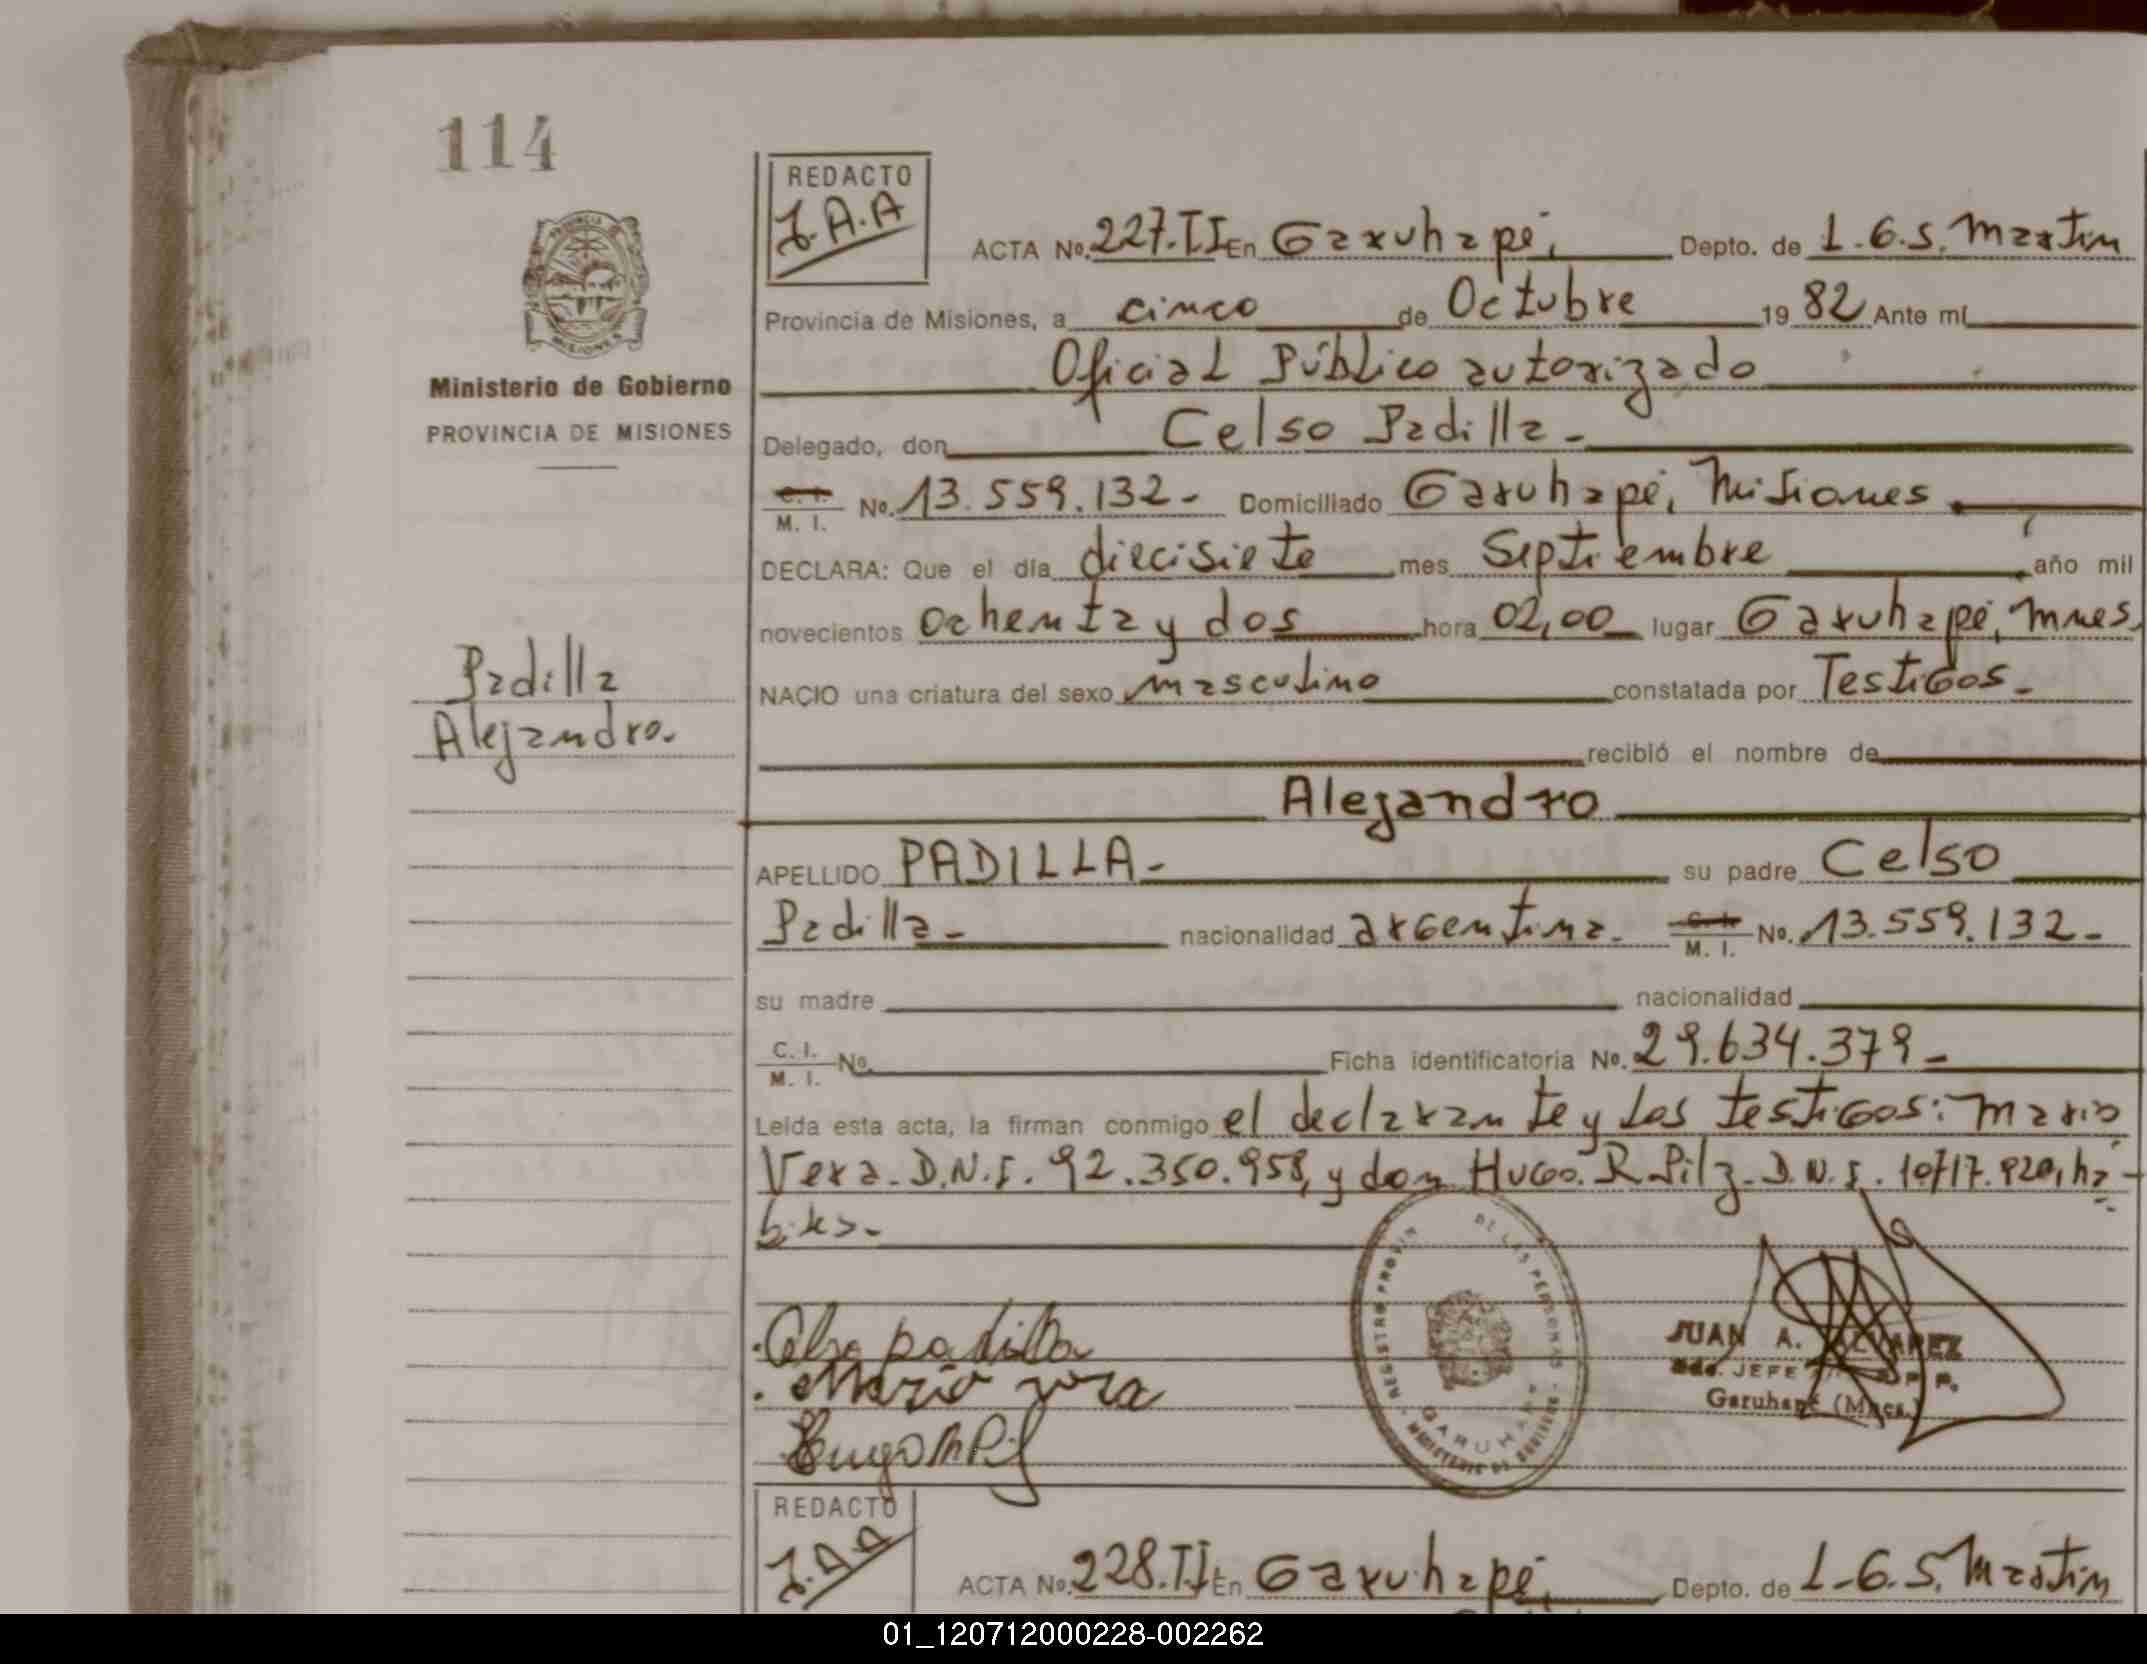 114
REDACTO
J.A.A
ACTA No. 227.TI En Garuhapé, Depto. de L.G.S. Martin
Provincia de Misiones, a cinco de Octubre 1982 Ante mí
Oficial Público autorizado
Ministerio de Gobierno
PROVINCIA DE MISIONES
Delegado, don Celso Padilla-
C. I.
M. I. No. 13.559.132- Domiciliado Garuhapé, Misiones
DECLARA: Que el día diecisiete mes Septiembre año mil
novecientos ochenta y dos hora 02,00 lugar Garuhapé, Mnes.
Padilla
Alejandro.
NACIO una criatura del sexo masculino constatada por Testigos-
recibió el nombre de
Alejandro
APELLIDO PADILLA- su padre Celso
Padilla- nacionalidad argentina- C. I. M. I. No. 13.559.132-
su madre nacionalidad
C. I.
M. I. No. Ficha identificatoria No. 29.634.379-
Leída esta acta, la firman conmigo el declarante y los testigos: Mario
Vera- D.N.I. 92.350.958, y don Hugo. R Pilz- D.N.I. 10717.920, há-
biles-
Celso padilla
Mario vera
Hugo R Pilz
REGISTRO PROVIN DE LAS PERSONAS
GARUHAPE
MINISTERIO DE GOBIERNO
JUAN A. ALVAREZ
JEFE
Garuhapé (Mnes.)
REDACTO
J.A.A
ACTA No. 228.TI En Garuhapé, Depto. de L-G.S. Martin
01_120712000228-002262